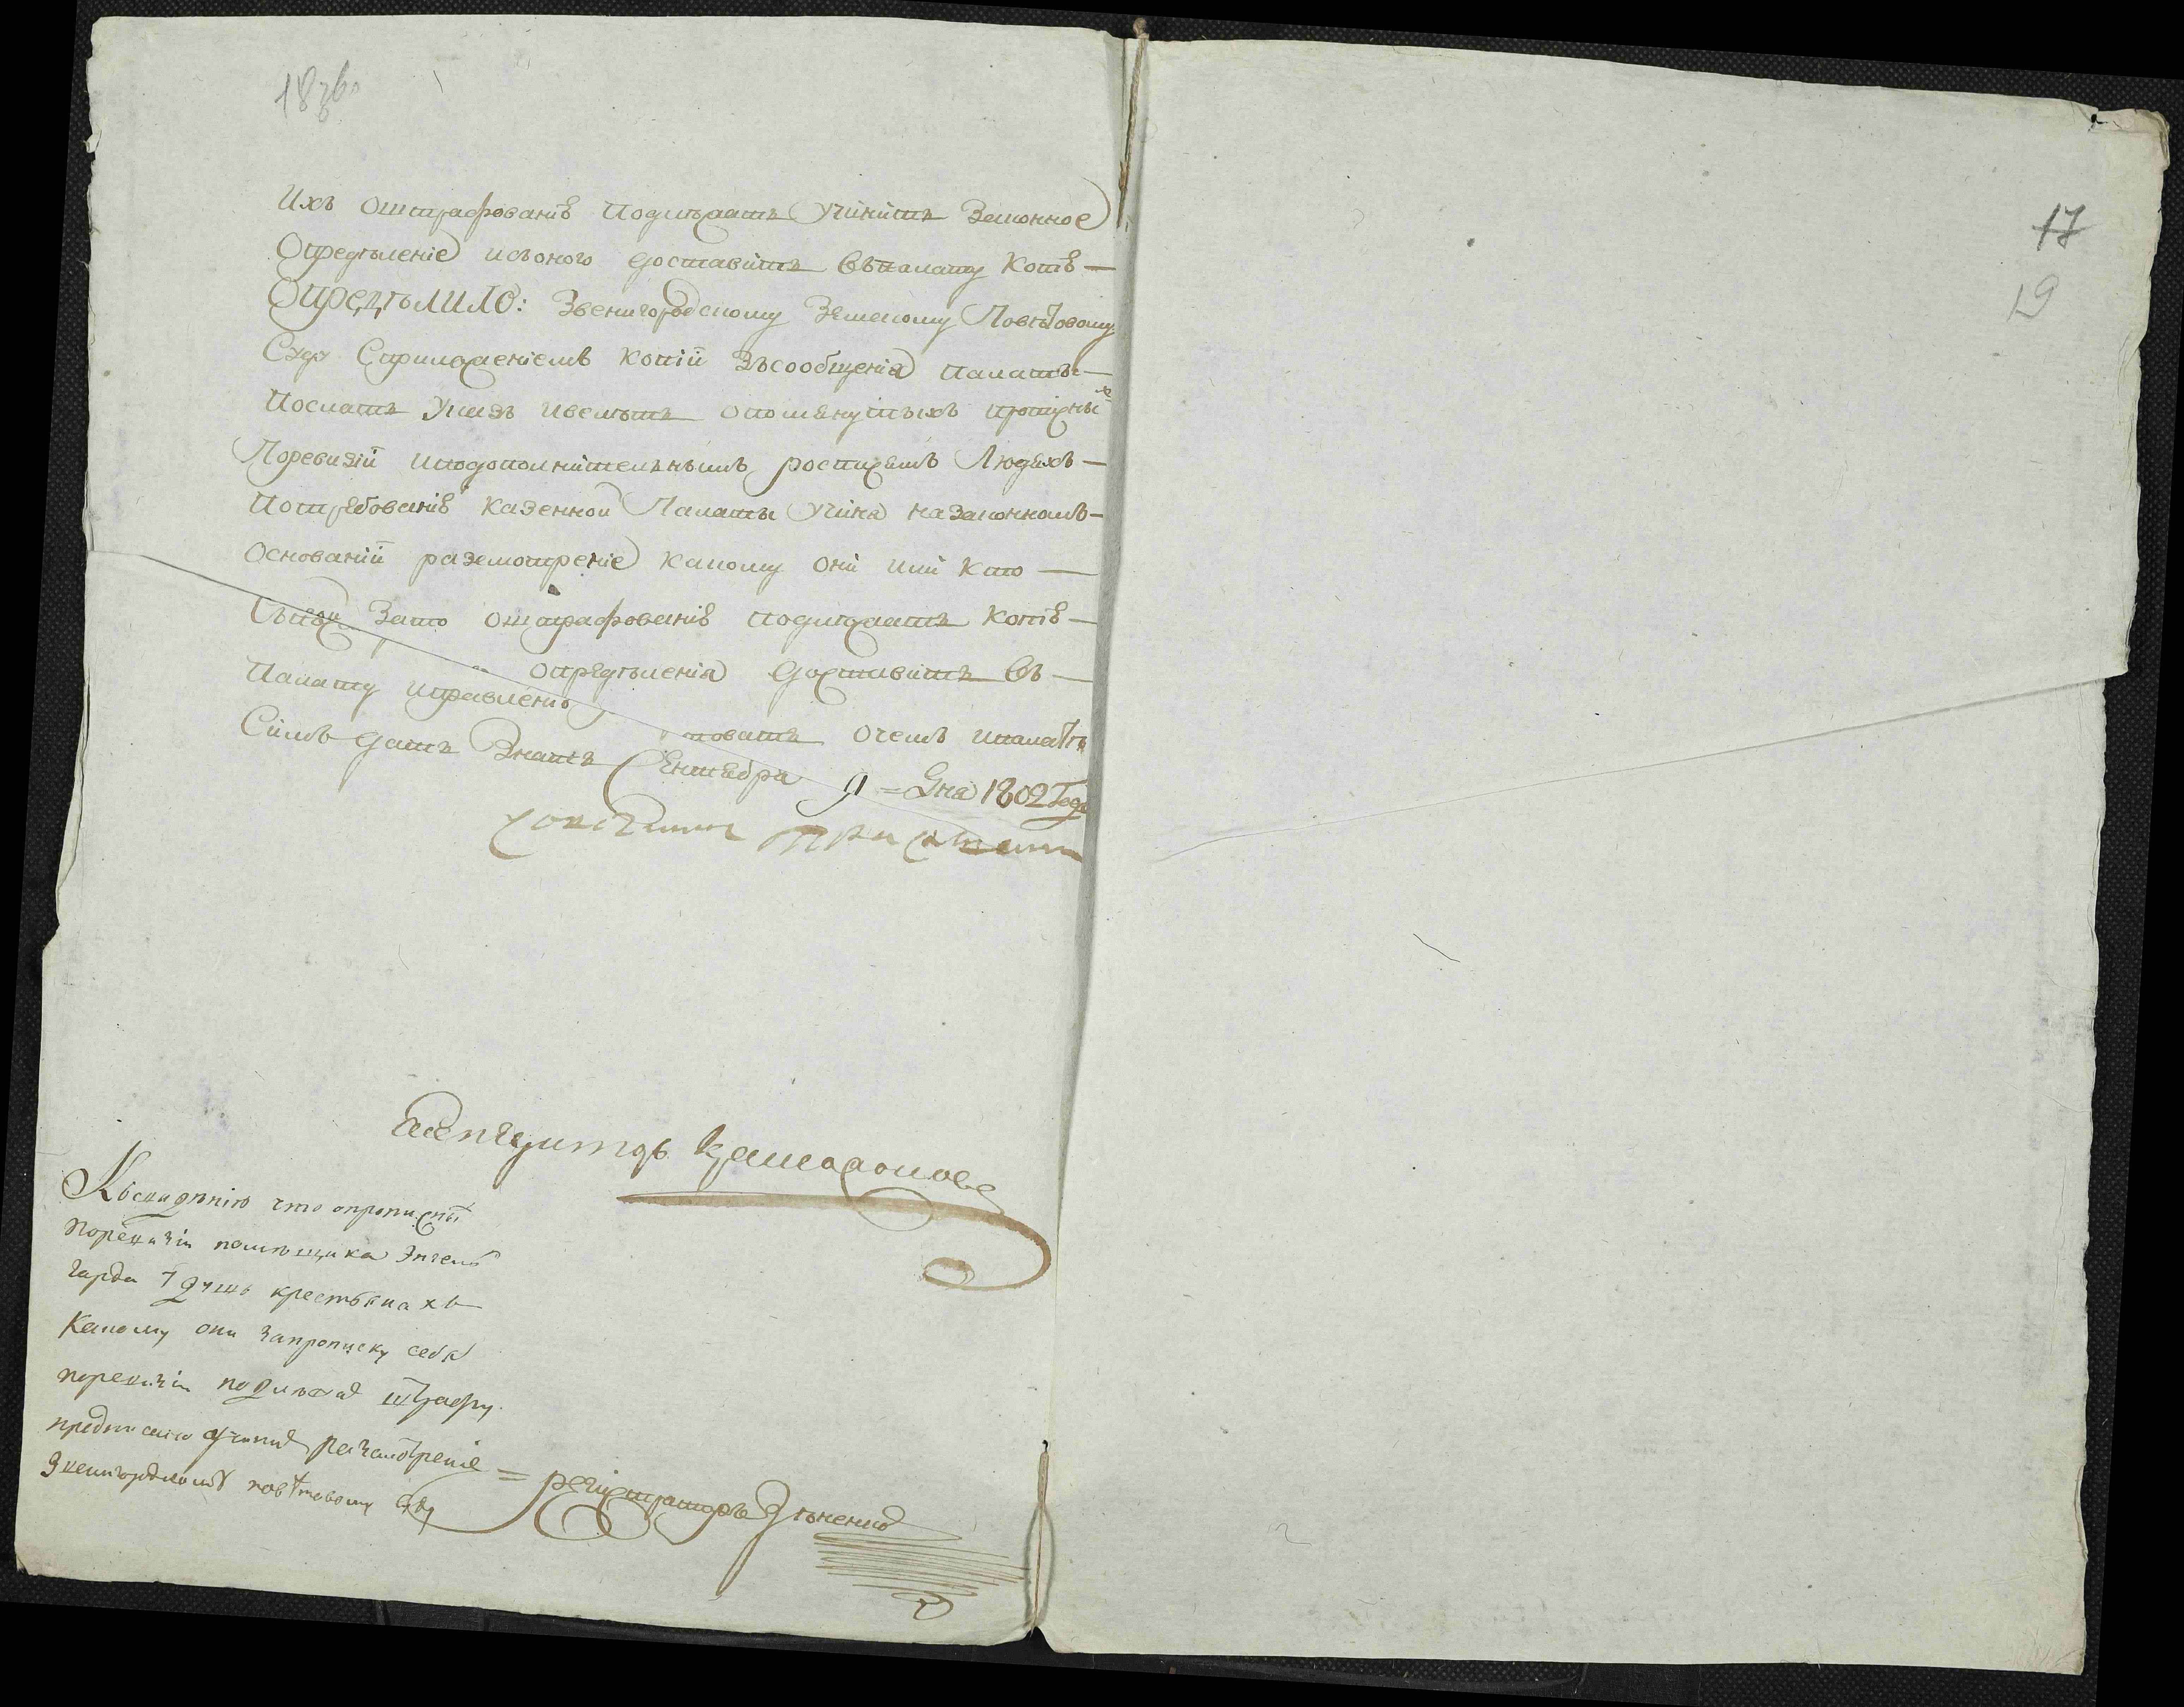 18об.
17
19
Ихъ оштрафованію подлѣжатъ учинить Законное
Определеніе исъоного доставить въпалату копію —
Определило: Звенигородскому Земскому Повѣтовому
Суду Сприложеніемъ копіи Зъсообщенія палаты —
послать указъ ивелѣть опомянутыхъ прописныхъ
Поревизіи иподополнительнымъ росписямъ Людяхъ —
потребованію казенной Палаты учиня назаконномъ —
основаніи разсмотреніе какому они или кто —
зато оштрафованію подлѣжатъ копію —
опредѣленія доставить въ —
Палату иправленію
очемъ ипалатѣ
Симъ дать Знать Сентября 9 = дня 1802 Года

Късведѣнію что опрописныхъ
поревизіи помѣщика Энгель
гарда 7 душъ крестьянахъ
Какому они запрописку себя
поревизіи подлѣжатъ штрафу
предписано учинить разсмотреніе =
Звенигородскому повѣтовому суду
регистраторъ